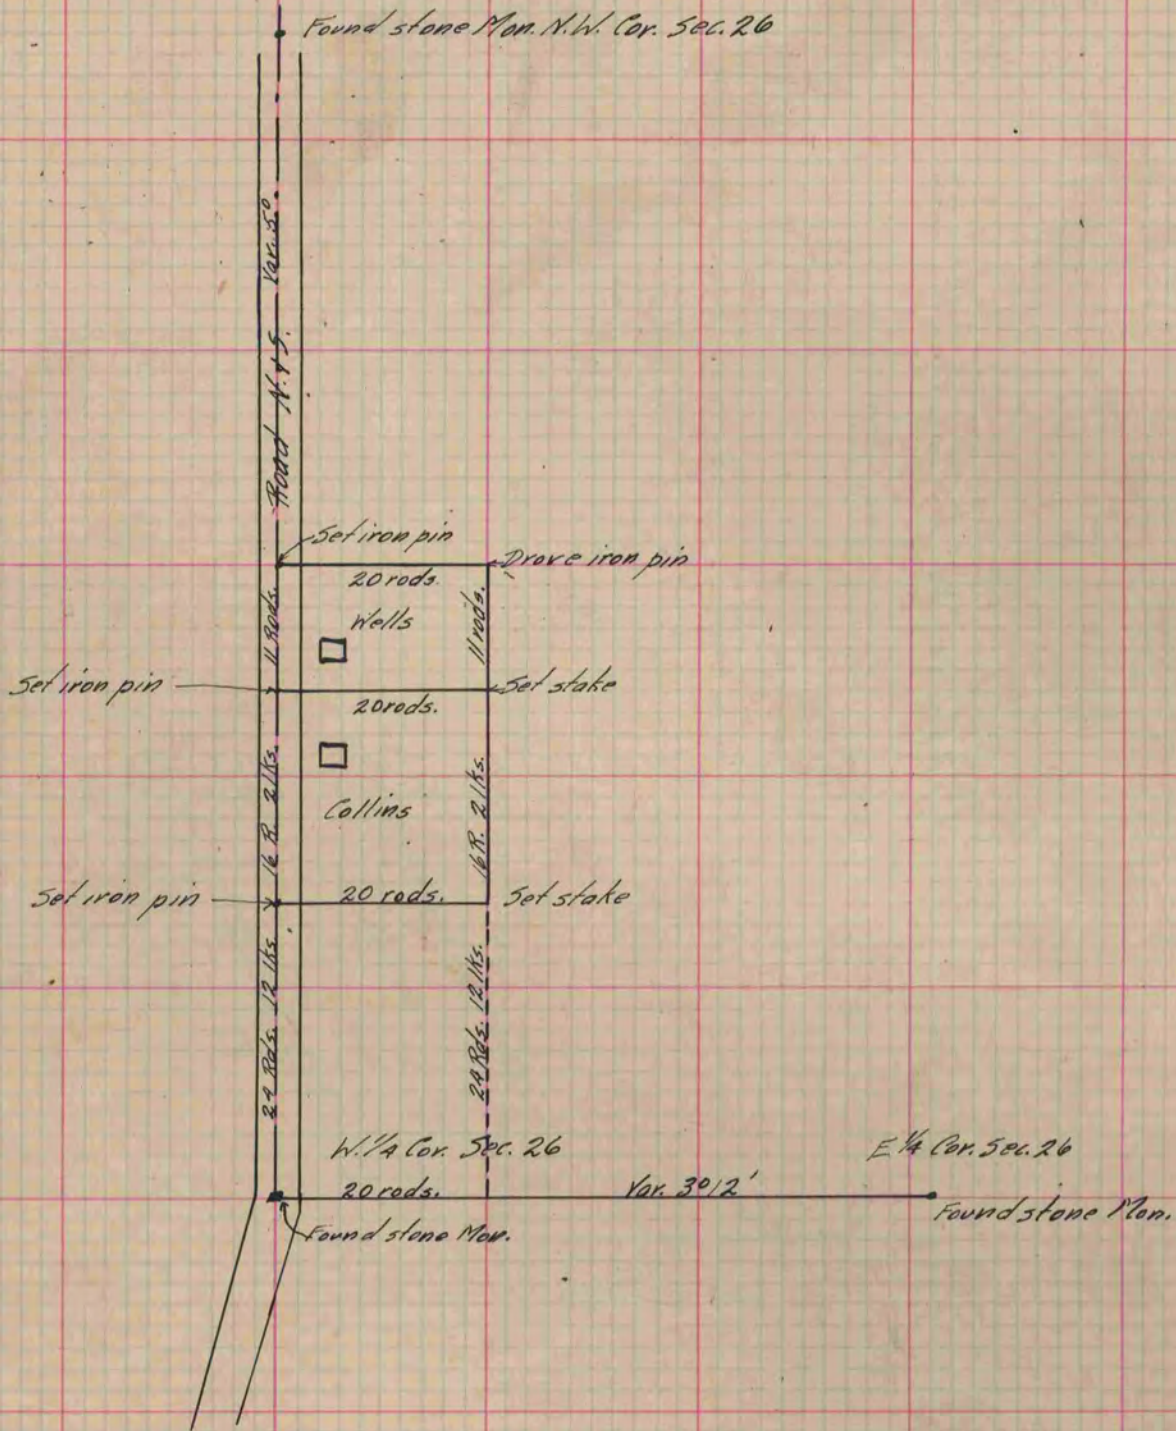 Found stone Mon. N.W. Cor. Sec. 26
Var. 5°
Road N. & S.
Set iron pin
Drove iron pin
20 rods.
11 Rods.
11 rods.
Wells
Set iron pin
Set stake
20 rods.
16 R. 2 lks.
16 R. 2 lks.
Collins
Set iron pin
20 rods.
Set stake
24 Rds. 12 lks.
24 Rds. 12 lks.
W. 1/4 Cor. Sec. 26
E 1/4 Cor. Sec. 26
20 rods.
Var. 3° 12'
Found stone Mon.
Found stone Mon.